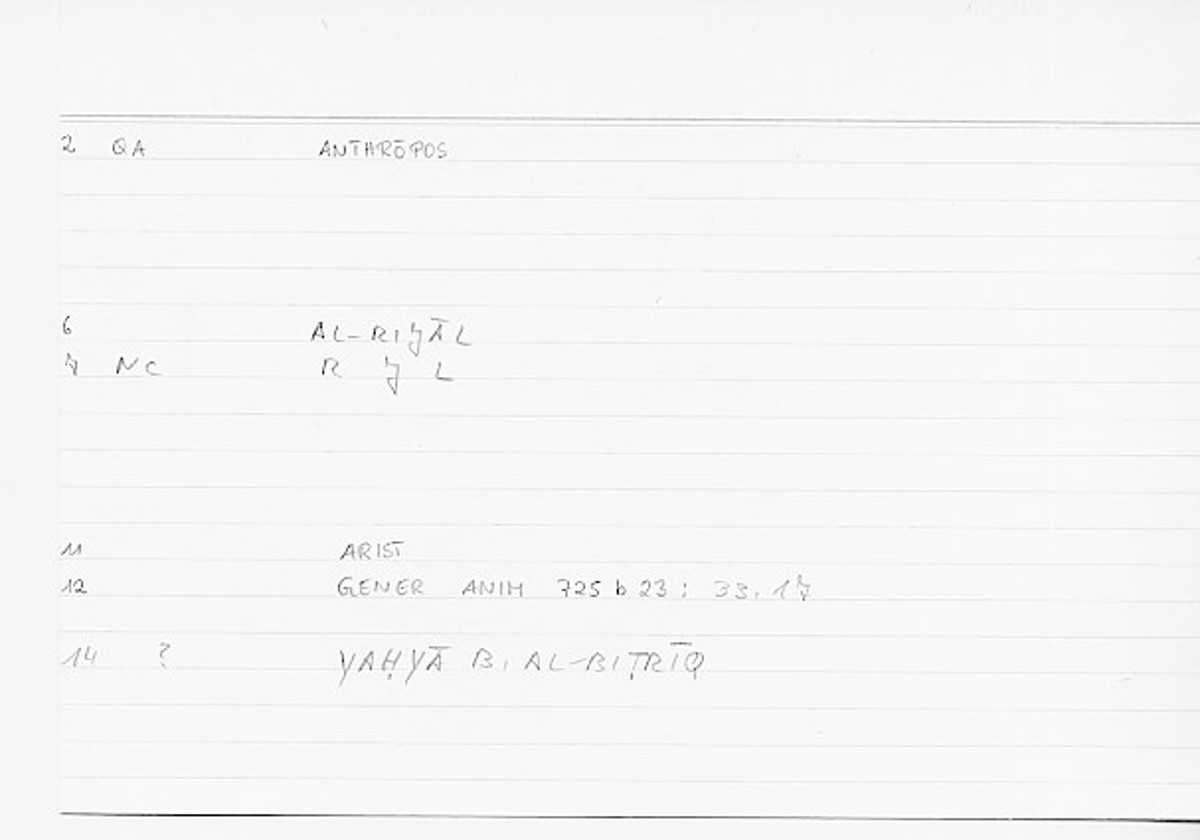 2 QA ANTHRŌPOS
6 AL-RIǦĀL
7 NC R Ǧ L
11 ARIST
12 GENER ANIM 725 b 23 ; 33.17
14 ? YAḤYĀ B. AL-BIṬRĪQ